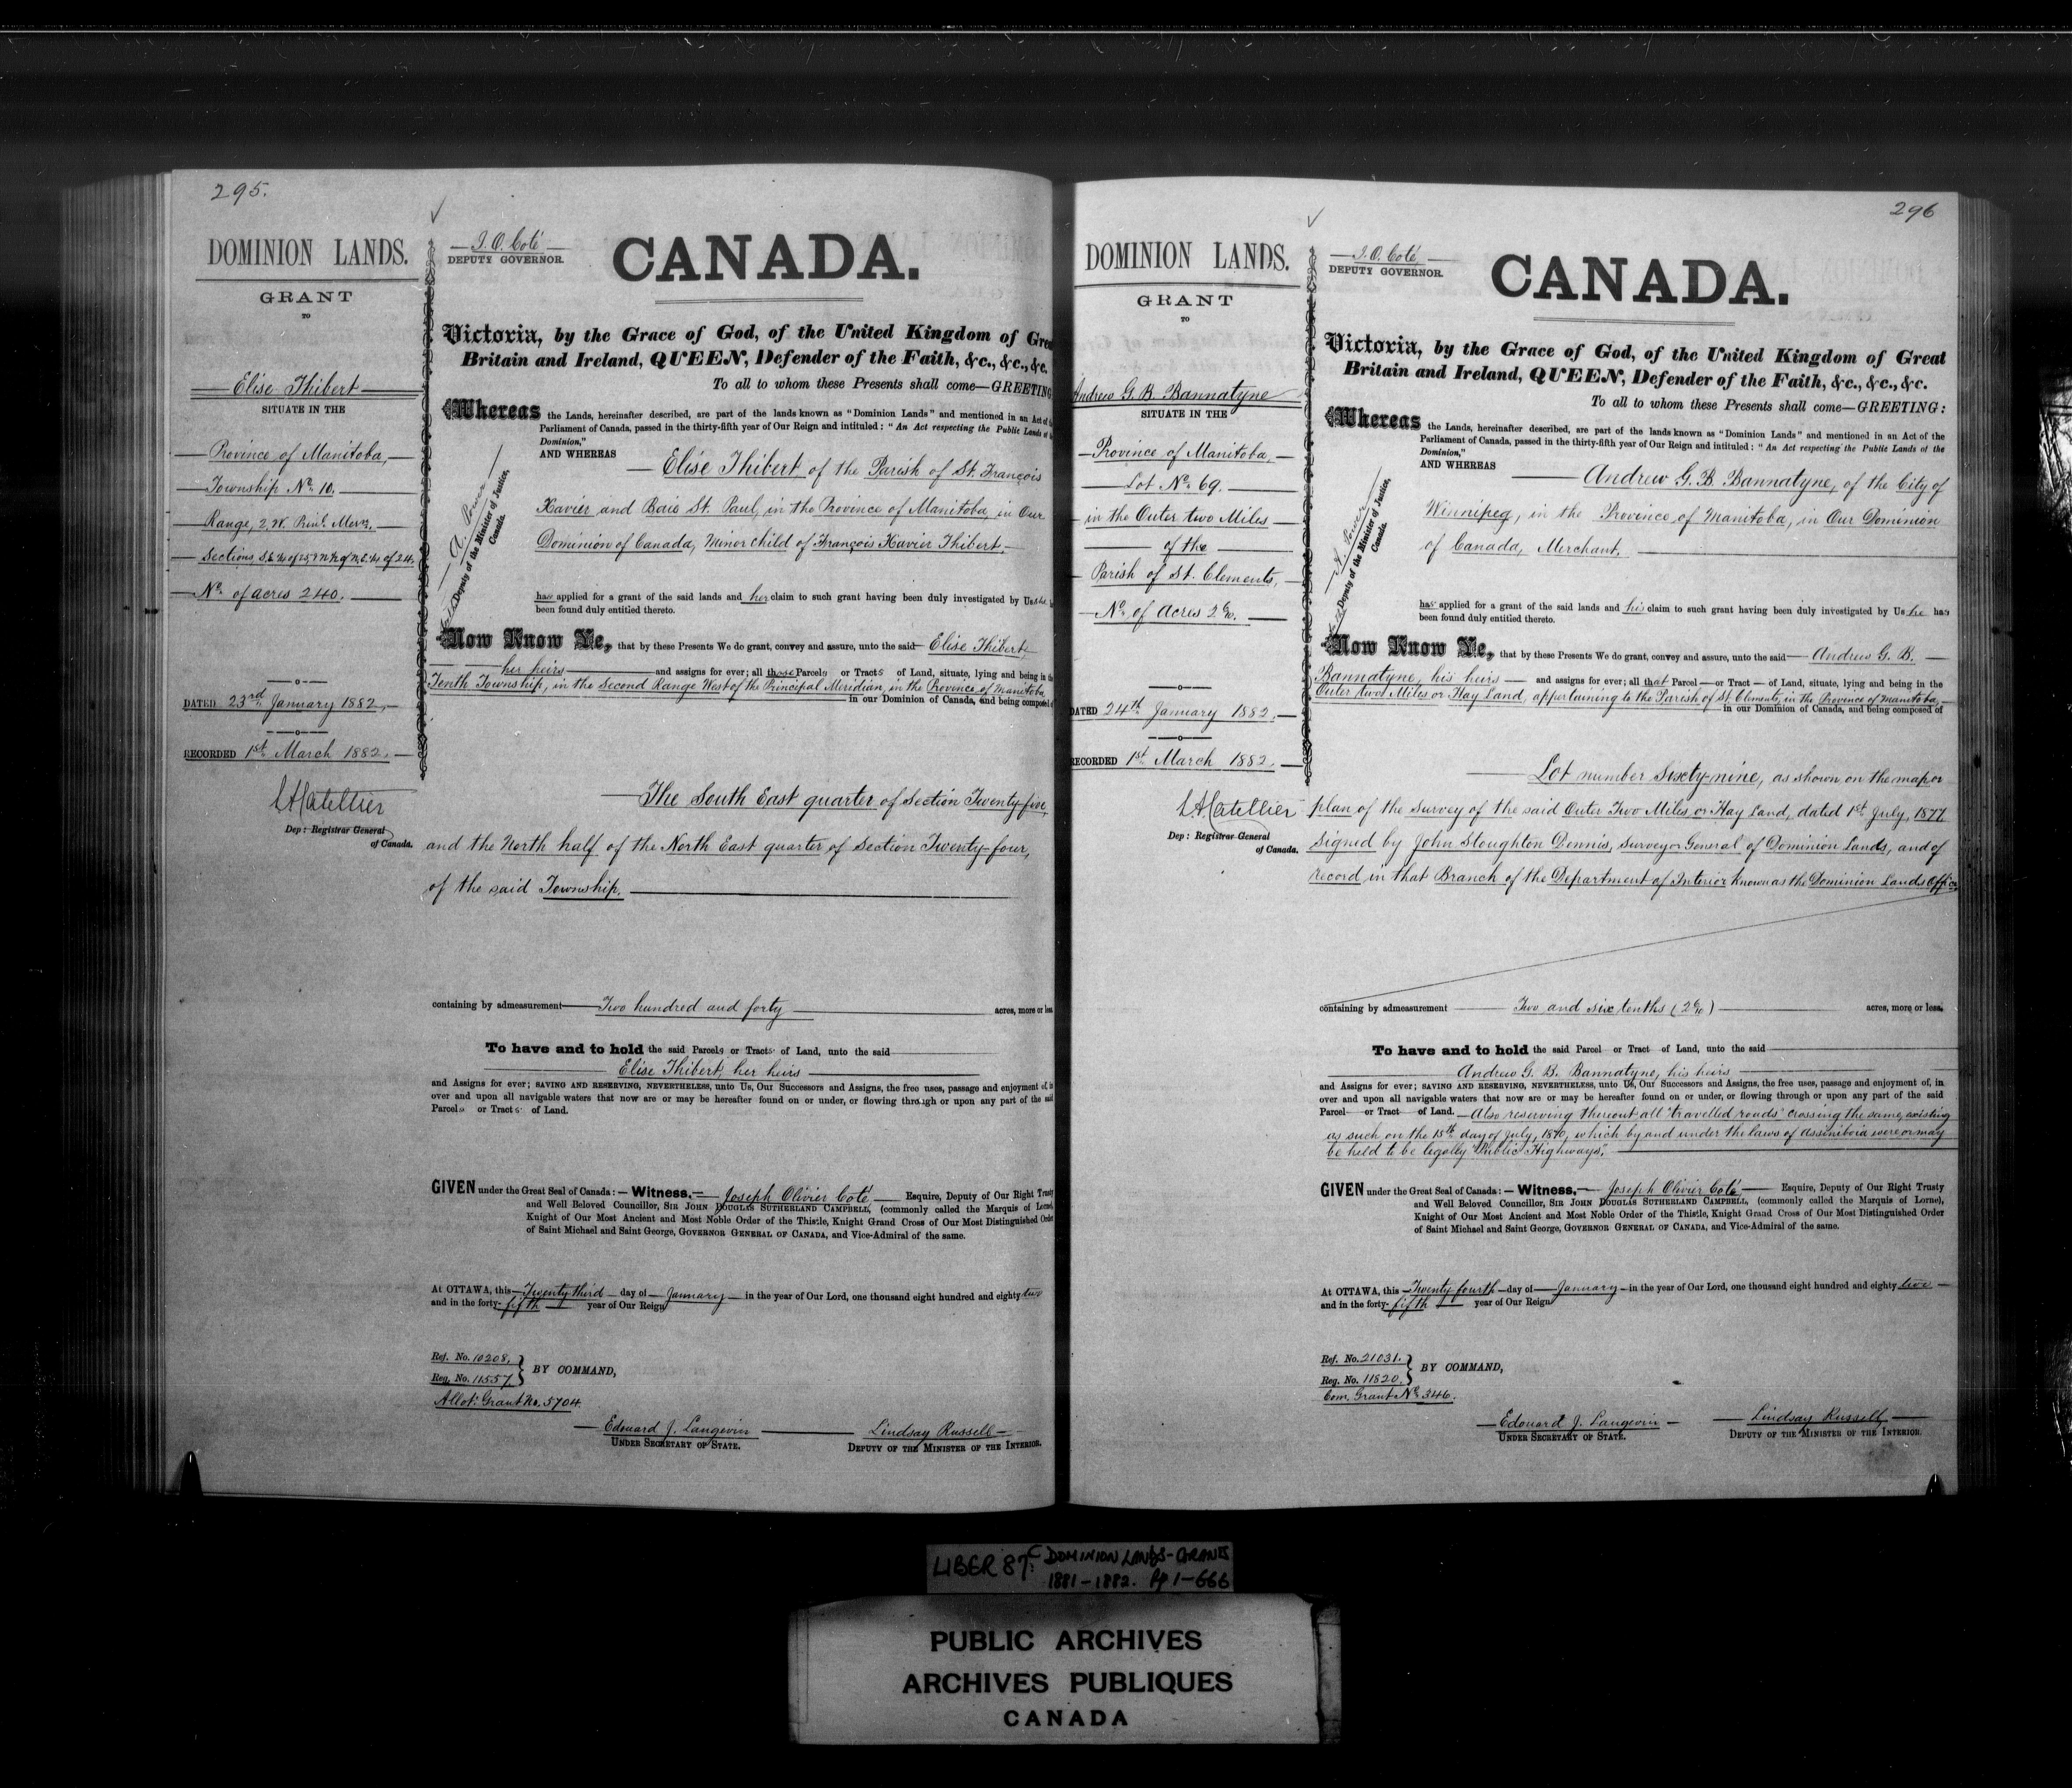 295.
DOMINION LANDS.
GRANT
TO
Elise Thibert
SITUATE IN THE
Province of Manitoba,
Township No. 10.
Range, 2, W. Prinl. Mern.
Sections S.E. ¼ of 25, & N. ½ of N.E. ¼ of 24.
No. of acres 240.
DATED 23rd January 1882,
RECORDED 1st March 1882,
L.A. Catellier
Dep: Registrar General
of Canada.
J. O. Coté
DEPUTY GOVERNOR.
CANADA.
A. Power
Deputy of the Minister of Justice,
Canada.
Victoria, by the Grace of God, of the United Kingdom of Grea
Britain and Ireland, QUEEN, Defender of the Faith, &c., &c., &c.
To all to whom these Presents shall come—GREETING
Whereas the Lands, hereinafter described, are part of the lands known as "Dominion Lands" and mentioned in an Act of
Parliament of Canada, passed in the thirty-fifth year of Our Reign and intituled: "An Act respecting the Public Lands of
Dominion,"
AND WHEREAS Elise Thibert, of the Parish of St. François
Xavier and Baie St. Paul, in the Province of Manitoba, in Our
Dominion of Canada, Minor child of François Xavier Thibert
has applied for a grant of the said lands and her claim to such grant having been duly investigated by Us she
been found duly entitled thereto.
Now Know Ye, that by these Presents We do grant, convey and assure, unto the said Elise Thibert,
her heirs and assigns for ever; all those Parcels or Tracts of Land, situate, lying and being in the
Tenth Township, in the Second Range West of the Principal Meridian, in the Province of Manitoba,
in our Dominion of Canada, and being composed
The South East quarter of Section Twenty-five,
and the North half of the North East quarter of Section Twenty-four,
of the said Township.
containing by admeasurement Two hundred and forty acres, more or less
To have and to hold the said Parcels or Tracts of Land, unto the said
Elise Thibert, her heirs
and Assigns for ever; SAVING AND RESERVING, NEVERTHELESS, unto Us, Our Successors and Assigns, the free uses, passage and enjoyment of, in
over and upon all navigable waters that now are or may be hereafter found on or under, or flowing through or upon any part of the said
Parcels or Tracts of Land.
GIVEN under the Great Seal of Canada:—Witness,—Joseph Olivier Coté Esquire, Deputy of Our Right Trusty
and Well Beloved Councillor, SIR JOHN DOUGLAS SUTHERLAND CAMPBELL, (commonly called the Marquis of Lorne),
Knight of Our Most Ancient and Most Noble Order of the Thistle, Knight Grand Cross of Our Most Distinguished Order
of Saint Michael and Saint George, GOVERNOR GENERAL OF CANADA, and Vice-Admiral of the same.
At OTTAWA, this Twenty third day of January in the year of Our Lord, one thousand eight hundred and eighty two
and in the forty-fifth year of Our Reign
Ref. No. 10208.
Reg. No. 11557. BY COMMAND,
Allot: Grant No. 5704.
Edouard J. Langevin
UNDER SECRETARY OF STATE.
Lindsay Russell
DEPUTY OF THE MINISTER OF THE INTERIOR.
296
DOMINION LANDS.
GRANT
TO
Andrew G. B. Bannatyne
SITUATE IN THE
Province of Manitoba,
Lot No. 69.
in the Outer two Miles
of the
Parish of St. Clements,
No. of Acres 2 6/10.
DATED 24th January 1882,
RECORDED 1st March 1882,
L.A. Catellier
Dep: Registrar General
of Canada.
J. O. Coté
DEPUTY GOVERNOR.
CANADA.
A. Power
Deputy of the Minister of Justice,
Canada.
Victoria, by the Grace of God, of the United Kingdom of Great
Britain and Ireland, QUEEN, Defender of the Faith, &c., &c., &c.
To all to whom these Presents shall come—GREETING:
Whereas the Lands, hereinafter described, are part of the lands known as "Dominion Lands" and mentioned in an Act of the
Parliament of Canada, passed in the thirty-fifth year of Our Reign and intituled: "An Act respecting the Public Lands of the
Dominion,"
AND WHEREAS Andrew G. B. Bannatyne, of the City of
Winnipeg, in the Province of Manitoba, in Our Dominion
of Canada, Merchant,
has applied for a grant of the said lands and his claim to such grant having been duly investigated by Us he has
been found duly entitled thereto.
Now Know Ye, that by these Presents We do grant, convey and assure, unto the said Andrew G. B.
Bannatyne, his heirs and assigns for ever; all that Parcel or Tract of Land, situate, lying and being in the
Outer two Miles or Hay Land, appertaining to the Parish of St. Clements, in the Province of Manitoba,
in our Dominion of Canada, and being composed of
Lot number Sixty-nine, as shown on the map or
plan of the survey of the said Outer Two Miles or Hay Land, dated 1st July, 1877
signed by John Stoughton Dennis, Surveyor General of Dominion Lands, and of
record in that Branch of the Department of Interior known as the Dominion Lands Office,
containing by admeasurement Two and six tenths (2 6/10) acres, more or less.
To have and to hold the said Parcel or Tract of Land, unto the said
Andrew G. B. Bannatyne, his heirs
and Assigns for ever; SAVING AND RESERVING, NEVERTHELESS, unto Us, Our Successors and Assigns, the free uses, passage and enjoyment of, in
over and upon all navigable waters that now are or may be hereafter found on or under, or flowing through or upon any part of the said
Parcel or Tract of Land. Also reserving thereout all "travelled roads" crossing the same, existing
as such on the 15th day of July, 1870, which by and under the laws of Assiniboia were or may
be held to be legally "Public Highways."
GIVEN under the Great Seal of Canada:—Witness,—Joseph Olivier Coté Esquire, Deputy of Our Right Trusty
and Well Beloved Councillor, SIR JOHN DOUGLAS SUTHERLAND CAMPBELL, (commonly called the Marquis of Lorne),
Knight of Our Most Ancient and Most Noble Order of the Thistle, Knight Grand Cross of Our Most Distinguished Order
of Saint Michael and Saint George, GOVERNOR GENERAL OF CANADA, and Vice-Admiral of the same.
At OTTAWA, this Twenty fourth day of January in the year of Our Lord, one thousand eight hundred and eighty two
and in the forty-fifth year of Our Reign
Ref. No. 21031.
Reg. No. 11820. BY COMMAND,
Com. Grant No. 346.
Edouard J. Langevin
UNDER SECRETARY OF STATE.
Lindsay Russell
DEPUTY OF THE MINISTER OF THE INTERIOR.
LIBER 87C DOMINION LANDS-GRANTS
1881-1882. Pp 1-666
PUBLIC ARCHIVES
ARCHIVES PUBLIQUES
CANADA